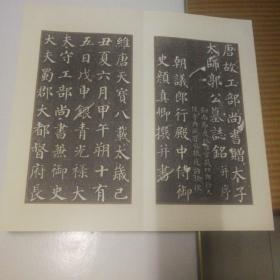 唐故工部尚書贈太子
太師郭公墓誌銘并序
朝議郎行殿中侍御
史顏真卿撰并書
維唐天寶八載太歲己
丑夏六月甲午朔十有
五日戊申銀青光祿大
夫守工部尚書兼御史
大夫蜀郡大都督府長